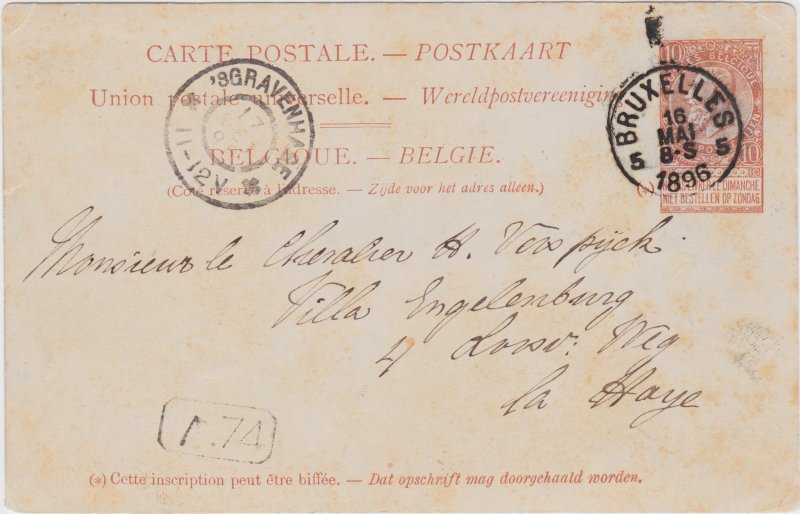 CARTE POSTALE. — POSTKAART
Union postale universelle. — Wereldpostvereeniging
BELGIQUE. — BELGIE.
(Côté réservé à l'adresse. — Zijde voor het adres alleen.)
'SGRAVENHAGE
17
11-12V
10 10
BELGIQUE
DIMANCHE
NIET BESTELLEN OP ZONDAG
BRUXELLES
16
MAI
8-S
5 5
1896
Monsieur le Chevalier H. Verspyck
Villa Engelenburg
4 Loosv: Weg
la Haye
.74
(*) Cette inscription peut être biffée. — Dat opschrift mag doorgehaald worden.